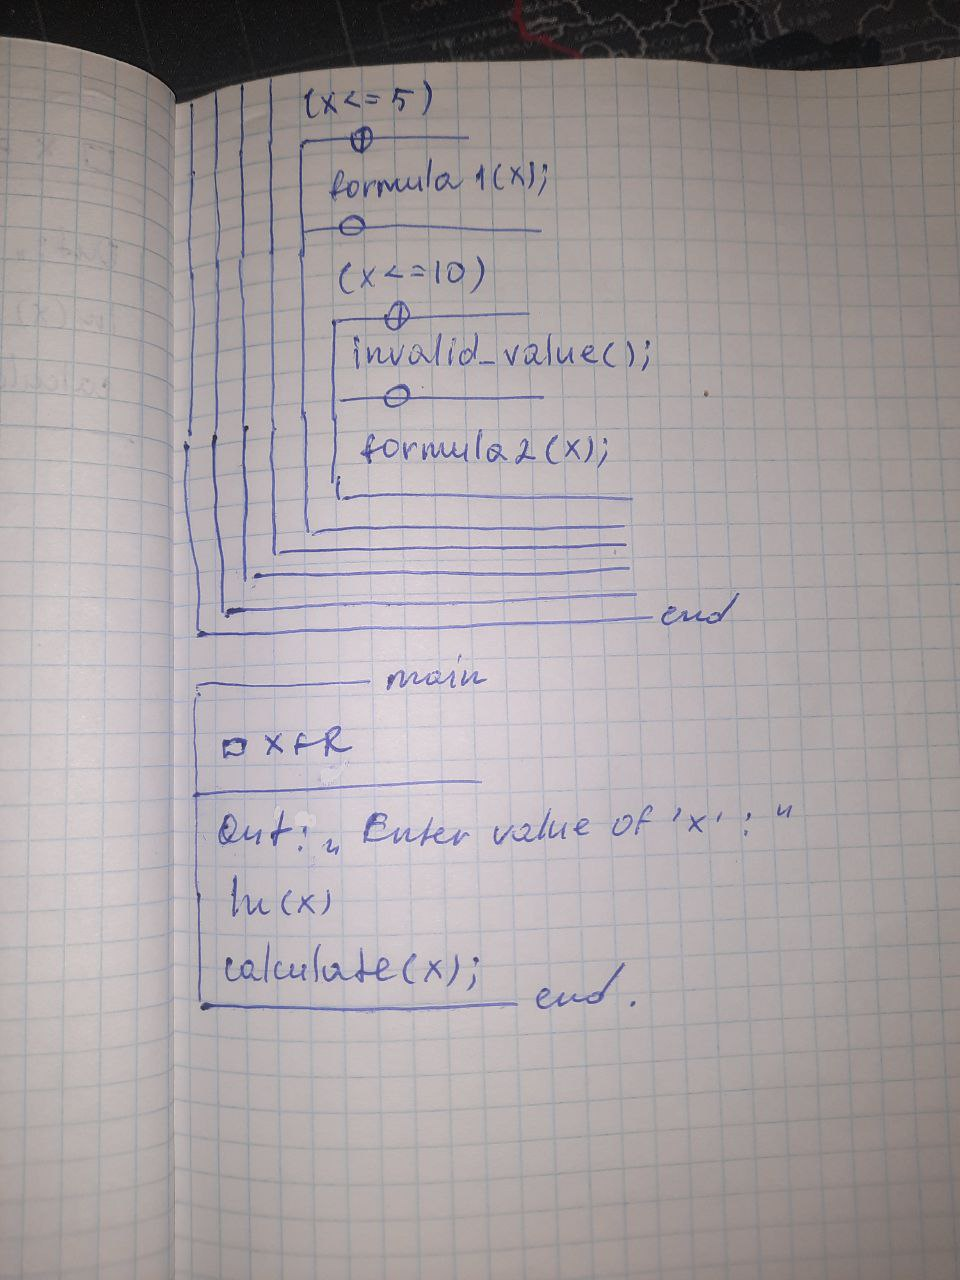 (x<=5)
formula 1(x);
(x<=10)
invalid_value();
formula2(x);
end
main
x∈R
Out: „Enter value of 'x' : "
In(x)
calculate(x);
end.